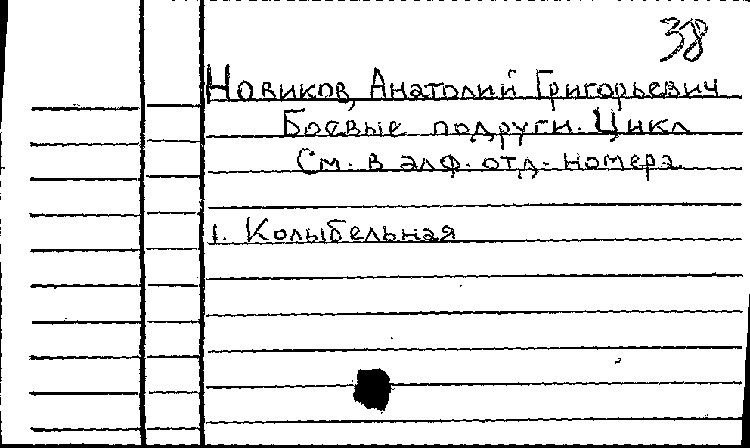 38
Новиков, Анатолий Григорьевич
Боевые подруги. Цикл
См. в алф. отд. номера.
1. Колыбельная